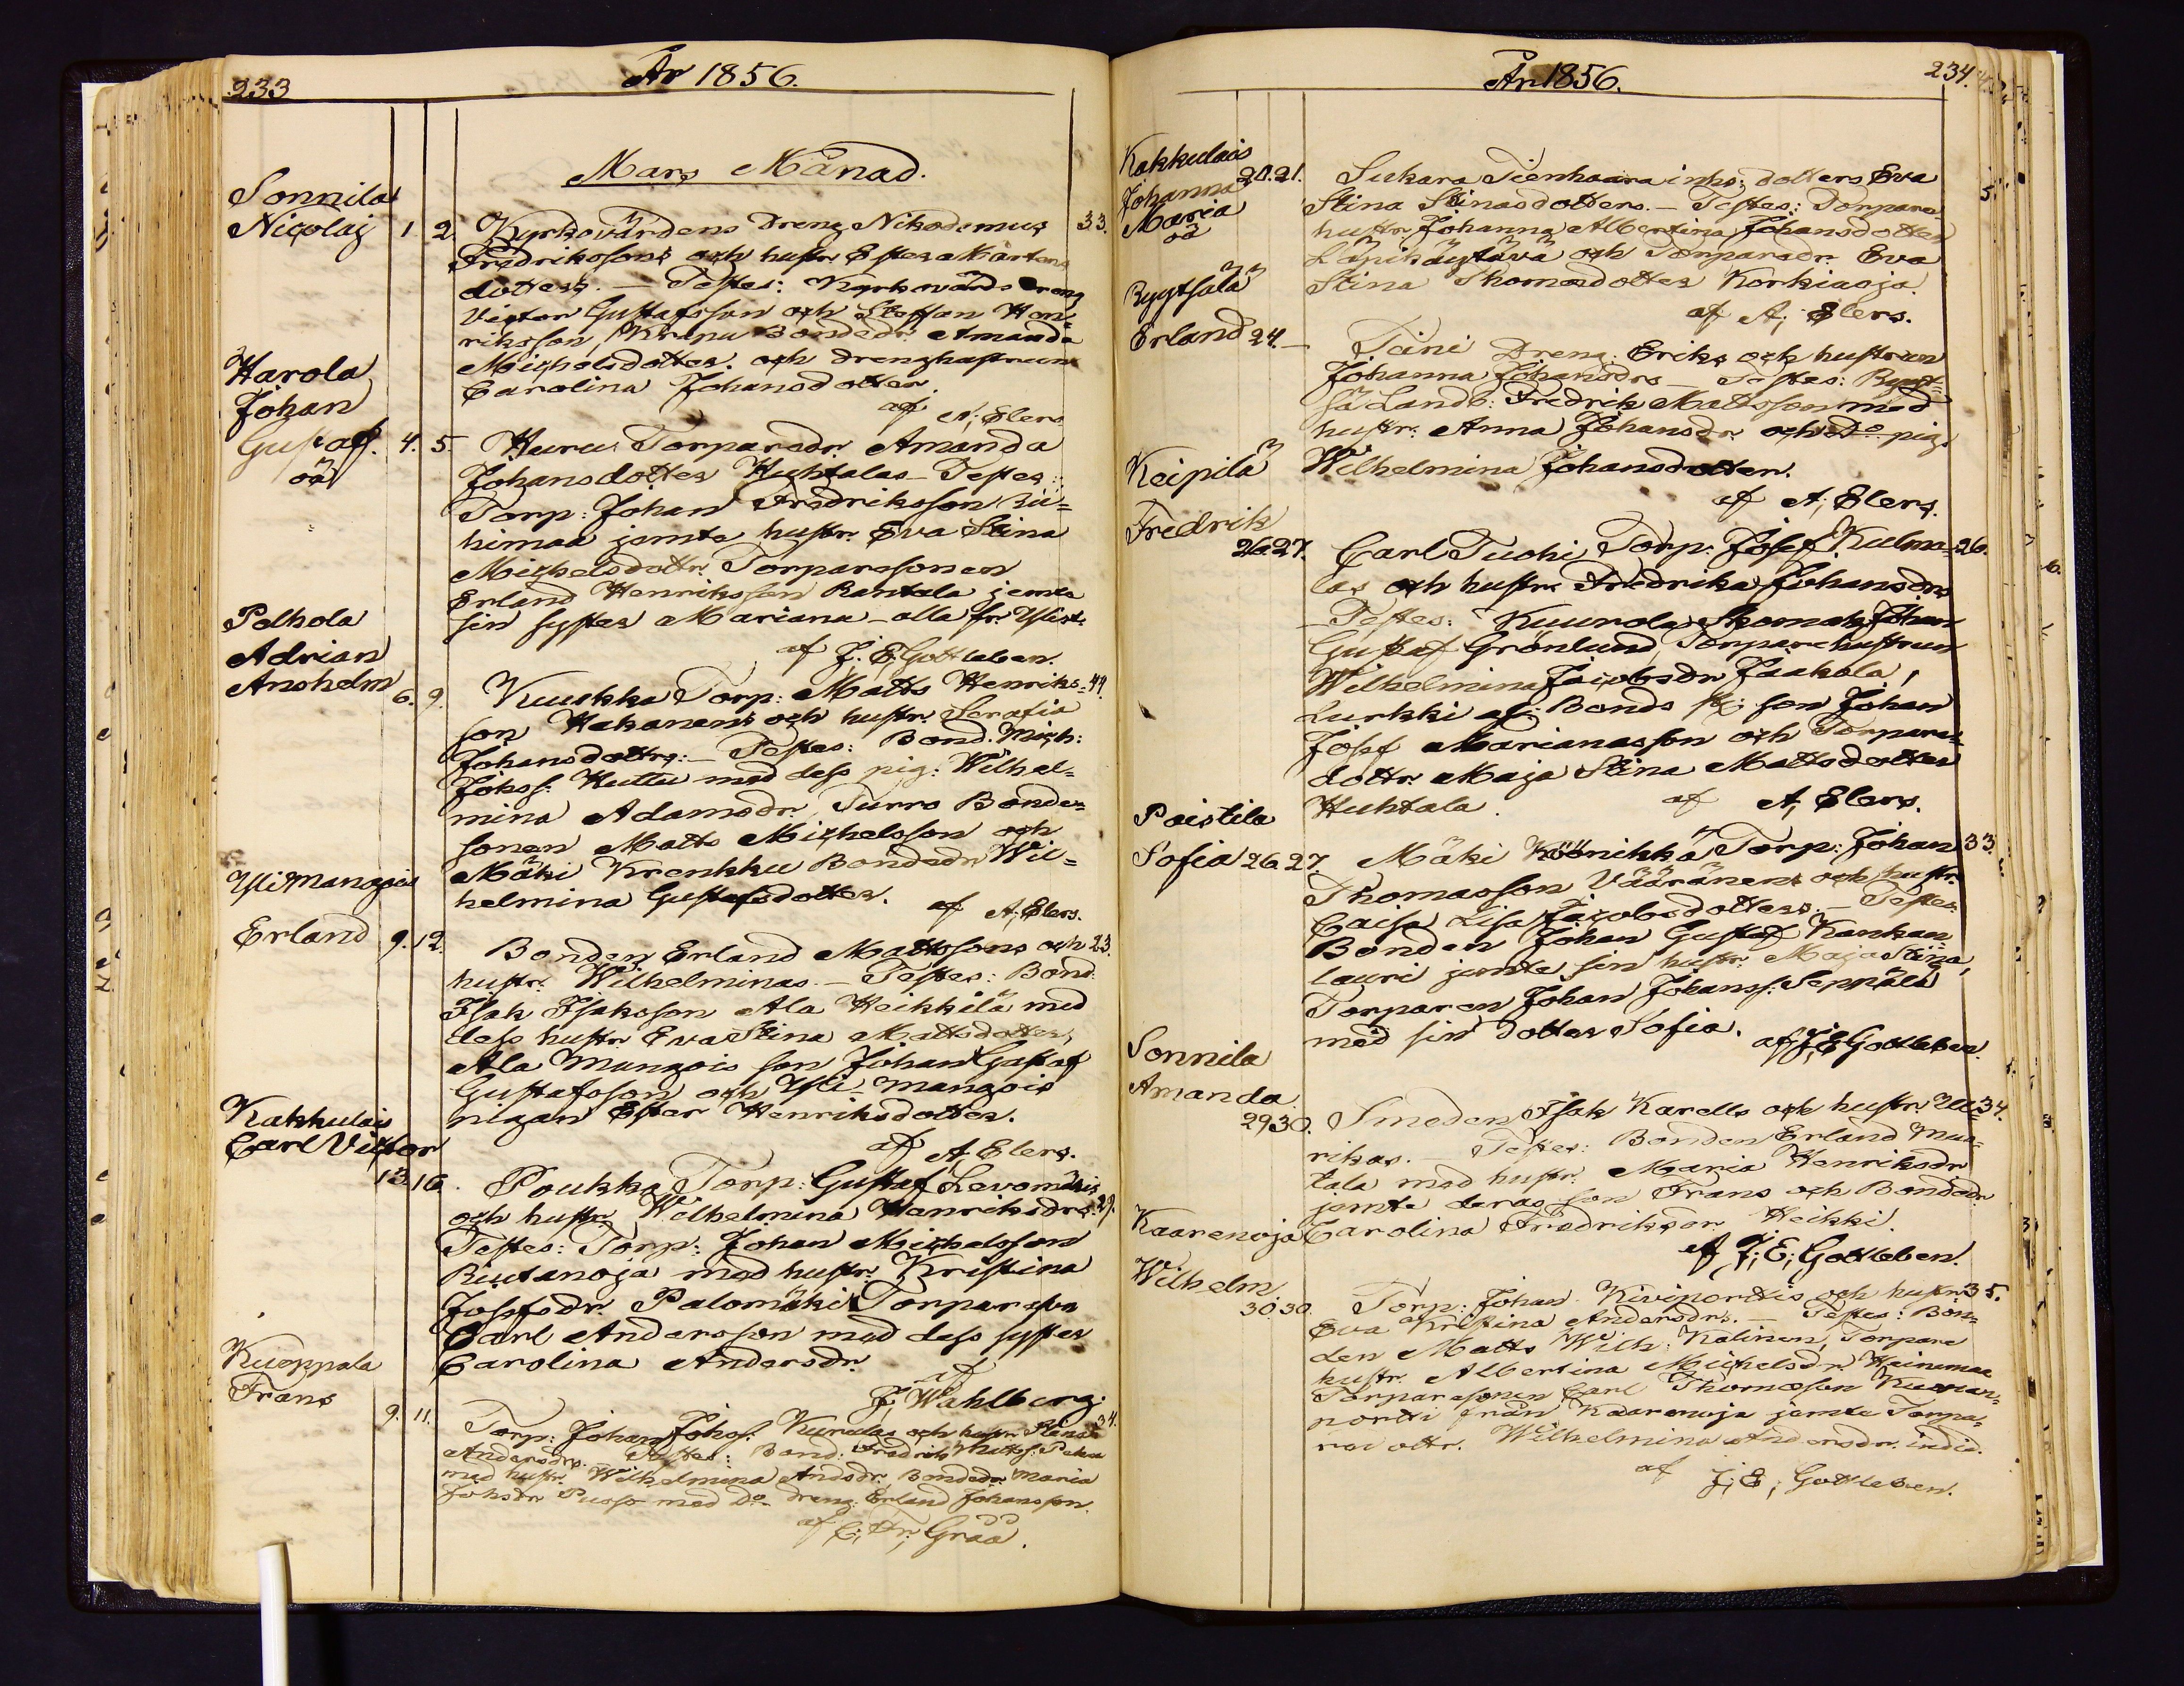 233
År 1856.
Mars Månad.
Sonnila
Nicolaj 1 2. Kyrkovärdens Dreng Nikodemus 33.
Fredrikssons och hustr Ester Mårtens
dotters. — Testes: Kyrkovärds dreng
Victor Gustafsson och Staffan Hen-
riksson, Krapu Bondedr Amanda
Michelsdotter och drenghustrun
Carolina Johansdotter.
af A; Elers
Harola
Johan
Gustaf. 4. 5. Huru Torparedr. Amanda
oä
Johansdotter Huhtalas — Testes:
Torp: Johan Fredriksson Rii=
himaa jemte hustr. Eva Stina
Michelsdottr. Torparesonen
Erland Henriksson Rantala jemte
sin syster Mariana — alla fr. Ylist.
af J. E. Gottleben.
Pelhola
Adrian
Anshelm 6. 9. Kuukka Torp: Matts Henriks- 44.
son Hakanens och hustr. Serafia
Johansdottrs: — Testes: Bond. Mich:
Johss: Huttu med dess pig: Wilhel=
mina Adamsdr. Turro Bonde=
sonen Matts Michelsson och
Mäki Krenkku Bondedr Wil=
helmina Gustafsdotter.
af A; Elers.
Yli Mangois
Erland 9. 12. Bonden Erland Mattssons och 23.
hustr. Wilhelminas. — Testes: Bond:
Isak Isaksson Ala Heikkilä med
dess hustr Eva Stina Mattsdotter,
Ala Mungois son Johan Gustaf
Gustafsson och Yli Mangois
pigan Ester Henriksdotter.
af A; Elers.
Kakkulais
Carl Victor
13. 16. Poukka Torp: Gustaf Levomäkis
och hustr Wilhelmina Henriksdrs. 29.
Testes: Torp: Johan Michelsson
Riutanoja med hustr. Kristina
Josefsdr. Palomäki Torpareson
Carl Andersson med dess syster
Carolina Andersdr.
af
J; Wahlberg.
Kuoppala
Frans
9. 11. Torp: Johan Johss: Kurulas och hustr. 34.
Andersdrs. Testes: Bond. Fredrik Mattss:
med hustr. Wilhelmina Andsdr. Bondedr. Maria
Johsdr Pusso med Do dreng: Erland Johansson.
af C; Fr; Gråå.
År 1856.
234.
Kakkulais
Johanna 20. 21. Sukara Tienhaara inhs: dotters Eva
Maria
oä
Stina Stinasdotters. — Testes: Torpare-
hustr Johanna Albertina Johansdotter
Läpikäytävä och Torparedr. Eva
Stina Thomasdotter Korkiaoja.
af A; Elers.
Rygtsälä
Erland 24. — Täni Dreng: Eriks och hustrun
Johanna Johansdrs — Testes: Rygt=
sä Landb: Fredrik Mattsson med
hustr: Anna Johansdr. och Do pig:
Wilhelmina Johansdotter.
af A; Elers.
Keipilä
Fredrik
26. 27. Carl Tuohi Torp: Josef Kulma- 26.
las och hustr Fredrika Johansdrs
— Testes: Kuurola Skomak: Johan
Gustaf Grönlund, Torparehustrun
Wilhelmina Jacobsdr Jaakola,
Lurkki af: Bonds son Johan
Josef Marianasson och Torpare-
dottr. Maja Stina Mattsdotter
Huhtala.
af A; Elers.
Poistila
Sofia 26. 27. Mäki Köönikkä Torp: Johan 33
Thomasson Vääränens och hustr.
Caisa Lisa Jacobsdotters. — Testes:
Bonden Johan Gustaf Kankan
Lauri jemte sin hustr: Maja Stina,
Torparen Johan Johanss: Seppälä
med sin dotter Sofia.
af J; E; Gottleben.
Sonnila
Amanda
29. 30. Smeden Isak Karells och hustr Ul- 34.
rikas. — Testes: Bonden Erland Mun-
tala med hustr. Maria Henriksdr
jemte deras son Frans och Bondedr
Carolina Fredriksdr. Heikki.
af J; E; Gottleben.
Kaarenoja
Wilhelm
30. 30. Torp: Johan Kiviporttis och hustr 35.
Eva Kristina Andersdrs. — Testes: Bon-
den Matts Wilh: Kalinen, Torpare
hustr. Albertina Michelsdr. Heinimaa
Torparesonen Carl Thomasson
portti från Kaarenoja jemte Torpa=
redottr. Wilhelmina Andersdr.
af J; E; Gottleben.